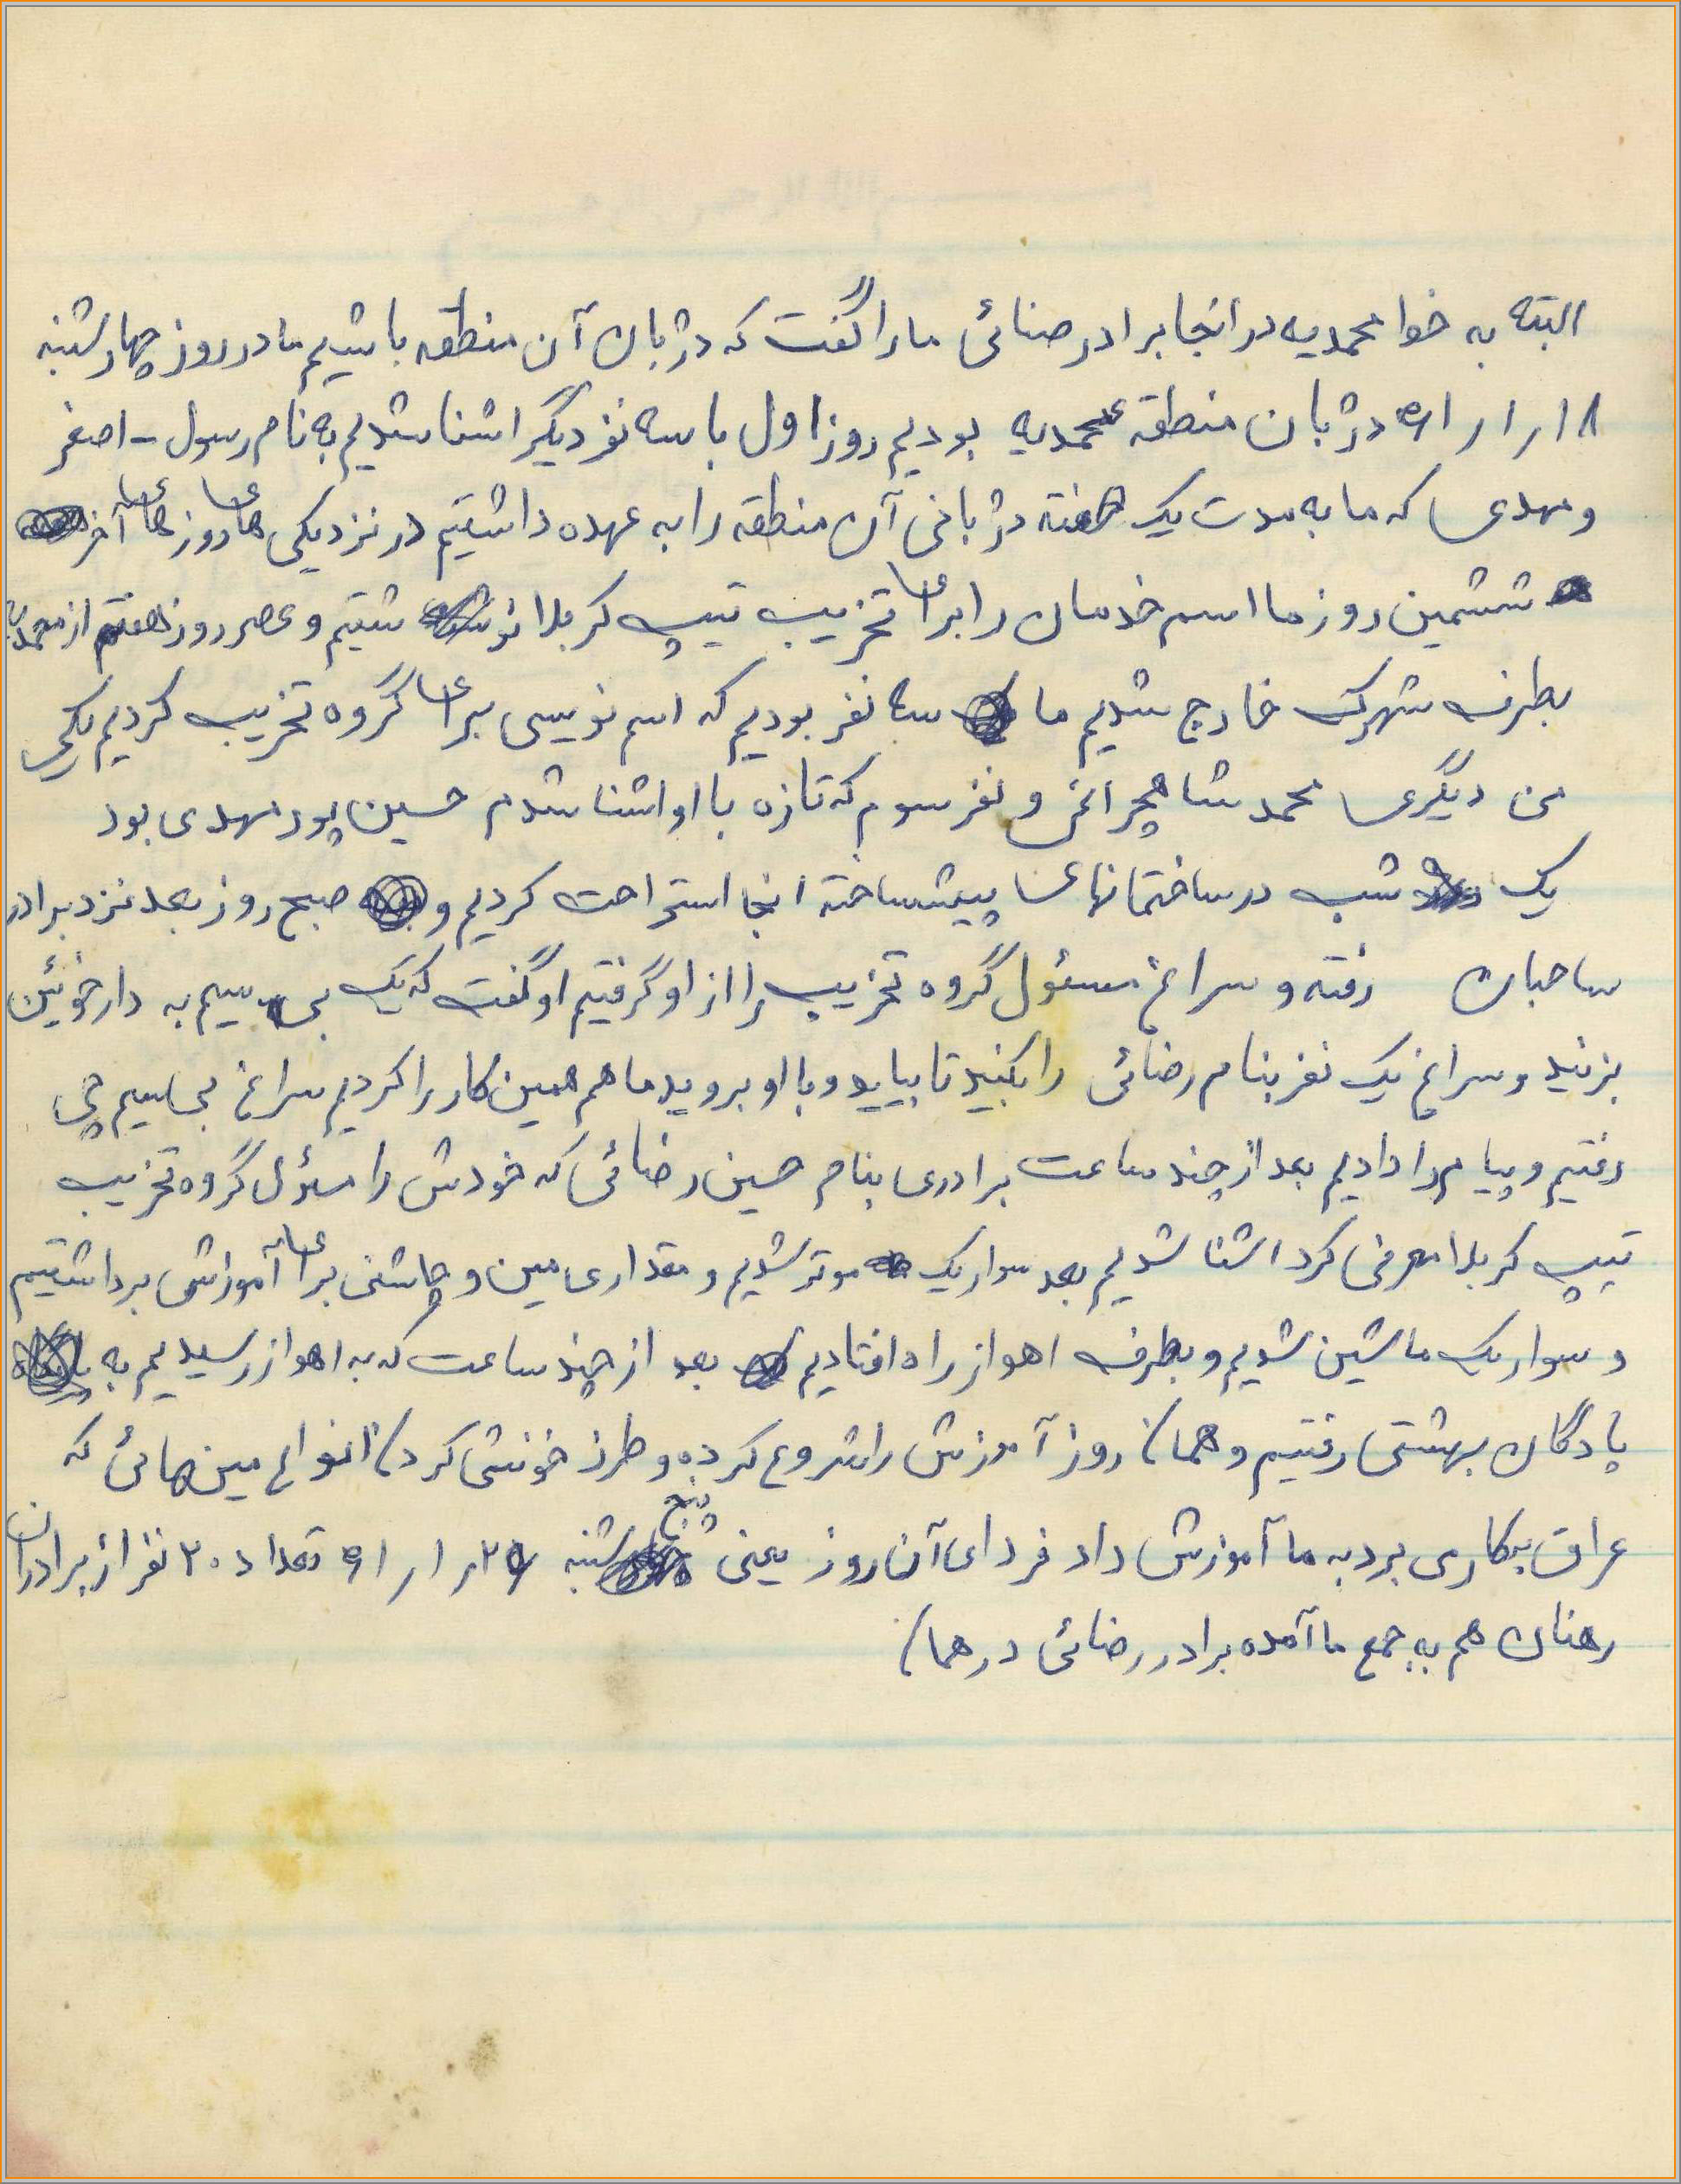 البته به خوا محمدیه در انجا برادر صنائی ما را گفت که دژبان آن منطقه باشیم ما در روز چهارشنبه
۱۸ر۱ر۶۱ دژبان منطقه محمدیه بودیم روز اول با سه نفر دیگر اشنا شدیم به نام رسول - اصغر
و مهدی که ما به مدت یک هفته دژبانی آن منطقه را به عهده داشتیم در نزدیکی های روز های آخر
ششمین روز ما اسم خدمان را برای تخریب تیپ کربلا نوشتیم و عصر روز هفتم از محمدیه
بطرف شهرک خارج شدیم ما سه نفر بودیم که اسم نویسی برای گروه تخریب کردیم یکی
من دیگری محمد شاهچراغی و نفر سوم که تازه با او اشنا شدم حسین پور مهدی بود
یک شب در ساختمانهای پیش ساخته انجا استراحت کردیم و صبح روز بعد نزد برادر
ساحبان رفته و سراغ مسئول گروه تخریب را از او گرفتیم او گفت که یک بی سیم به دارخوئین
بزنید و سراغ یک نفر بنام رضائی را بکنید تا بیاید و با او بروید ما هم همین کار را کردیم سراغ بی سیم چی
رفتیم و پیام را دادیم بعد از چند ساعت برادری بنام حسین رضائی که خودش را مسئول گروه تخریب
تیپ کربلا معرفی کرد اشنا شدیم بعد سوار یک موتر شدیم و مقداری مین و چاشنی برای آموزش برداشتیم
و سوار یک ماشین شدیم و بطرف اهواز راه افتادیم بعد از چند ساعت که به اهواز رسیدیم به
پادگان بهشتی رفتیم و همان روز آموزش را شروع کرده و طرز خنثی کردن انواع مین هائی که
عراق بکار می برد به ما آموزش داد فردای آن روز یعنی پنج شنبه ۲۶ر۱ر۶۱ تعداد ۲۰ نفر از برادران
رهنان هم به جمع ما آمده برادر رضائی در همان